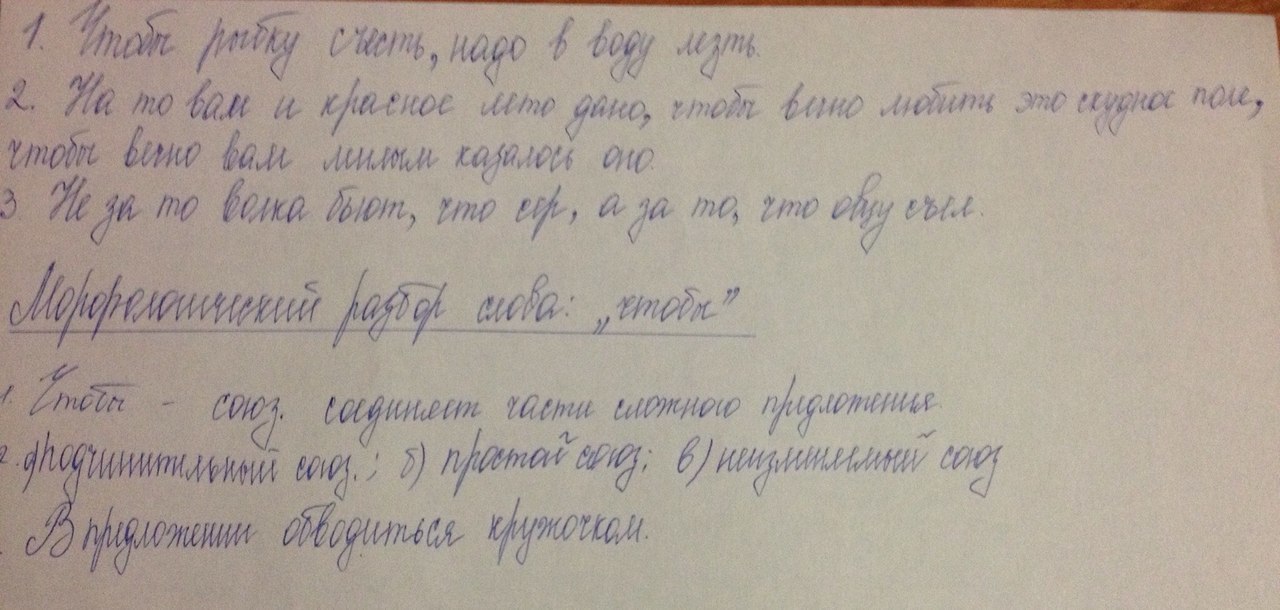 1. Чтобы рыбку съесть, надо в воду лезть.
2. На то вам и красное лето дано, чтобы вечно любить это скудное поле,
чтобы вечно вам милым казалось оно.
3. Не за то волка бьют, что сер, а за то, что овцу съел.
Морфологический разбор слова: „чтобы”
1. Чтобы - союз. соединяет части сложного предложения.
2. а) подчинительный союз.; б) простой союз; в) неизменяемый союз
. В предложении обводиться кружочком.